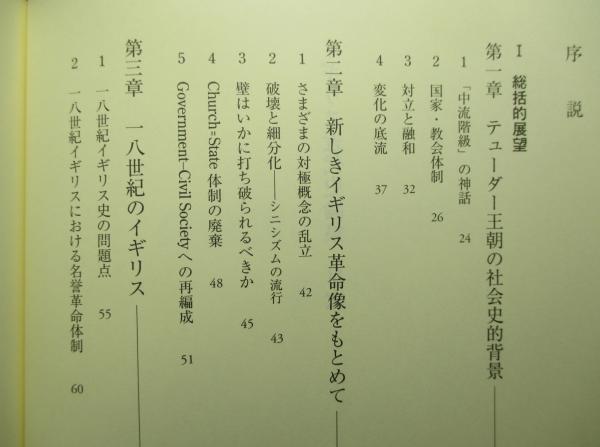 序説
I 総括的展望
第一章 テューダー王朝の社会史的背景
1 「中流階級」の神話 24
2 国家・教会体制 26
3 対立と融和 32
4 変化の底流 37
第二章 新しきイギリス革命像をもとめて
1 さまざまの対極概念の乱立 42
2 破壊と細分化——シニシズムの流行 43
3 壁はいかに打ち破られるべきか 45
4 Church=State 体制の廃棄 48
5 Government–Civil Society への再編成 51
第三章 一八世紀のイギリス
1 一八世紀イギリス史の問題点 55
2 一八世紀イギリスにおける名誉革命体制 60